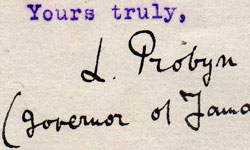 Yours truly,
L. Probyn
(Governor of Jama